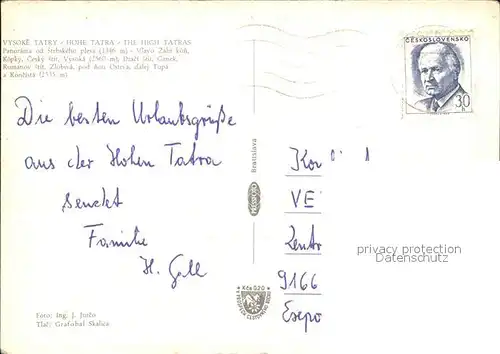 VYSOKÉ TATRY - HOHE TATRA - THE HIGH TATRAS
Panoráma od Štrbského plesa (1346 m) - Vľavo Zadr. kôň,
Kôpky, Český štít, Vysoká (2560 m), Dračí štít, Ganek,
Rumanov štít, Zlobivá, pod ňou Ostrva, ďalej Tupá
a Končistá (2535 m)
ČESKOSLOVENSKO
30
h
Die besten Urlaubsgrüße
aus der Hohen Tatra
sendet
Familie
H. Goll
Bratislava
PRESSFOTO
Kčs 0,20
Kor
VE
Zentr
9166
Expo
privacy protection
Datenschutz
Foto: Ing. J. Jurčo
Tlač: Grafobal Skalica